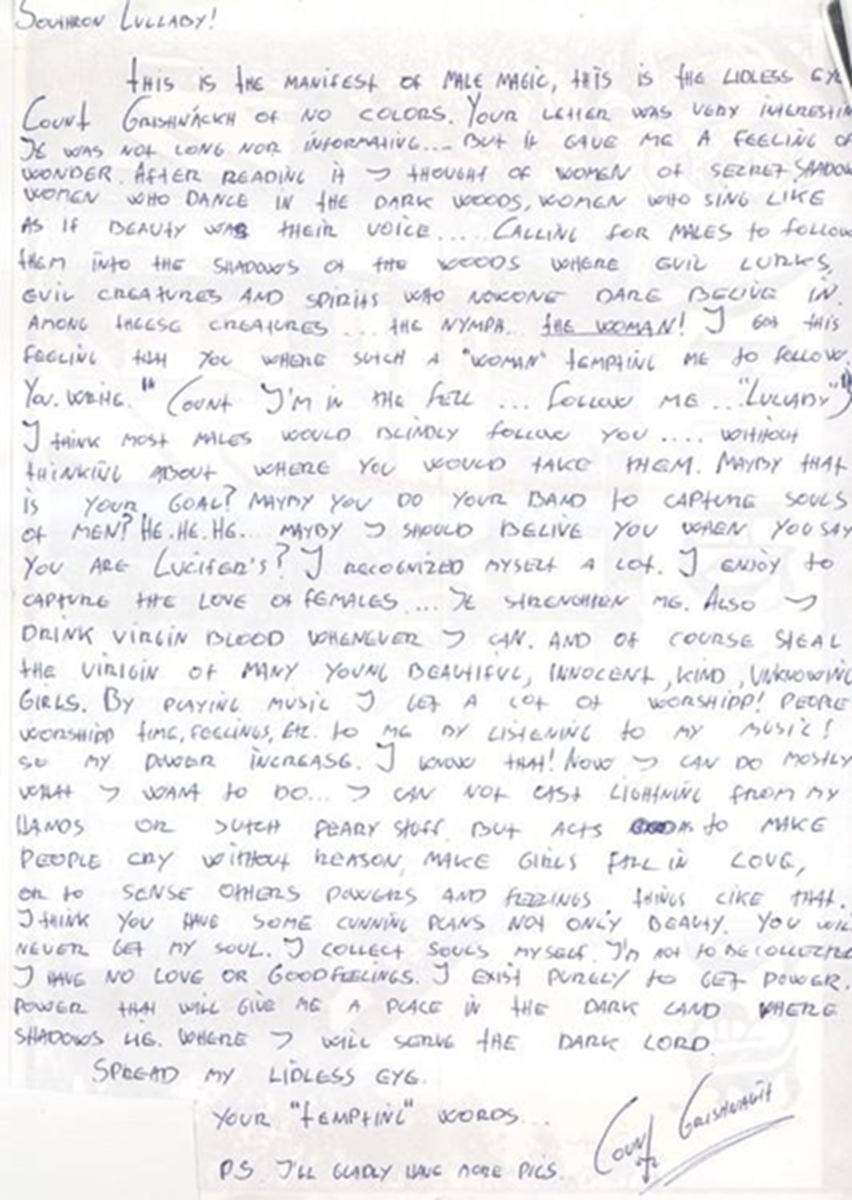 Southron Lullaby!
This is the manifest of male magic, this is the lidless eye
Count Grishnáckh of no colors. Your letter was very interestin
It was not long nor informative... But it gave me a feeling of
wonder. After reading it I thought of women of secret shadow
women who dance in the dark woods, women who sing like
as if beauty was their voice.... Calling for males to follow
them into the shadows of the woods where evil lurks,
evil creatures and spirits who nokone dare belive in.
Among theese creatures... the nymph... the woman! I got this
feeling that you where sutch a "woman" tempting me to follow
you. Write. "Count I'm in the fell ... follow me ..."Lullaby")
I think most males would blindly follow you .... without
thinking about where you would take them. Mayby that
is your goal? Mayby you do your band to capture souls
of men? He.He.He... mayby I should belive you when you say
you are Lucifer's? I recognized myself a lot. I enjoy to
capture the love of females.... It strenghten me. Also I
drink virgin blood whenever I can. And of course steal
the virigin of many young beautiful, innocent, kind, unknowing
girls. By playing music I get a lot of worshipp! People
worshipp time, feelings, etc. to me by listening to my music!
so my power increase. I know that! Now I can do mostly
what I want to do... I can not cast lightning from my
hands or sutch stuff. But acts to make
people cry without reason, make girls fall in love,
or to sense others powers and feelings, things like that.
I think you have some cunning plans not only beauty. You will
never get my soul. I collect souls myself. I'm not to be collected
I have no love or goodfeelings. I exist purely to get power.
Power that will give me a place in the dark land where
shadows lie. Where I will serve the dark lord.
Spread my lidless eye.
Your "tempting" words...
Count Grishnackh
PS I'll gladly have more pics.